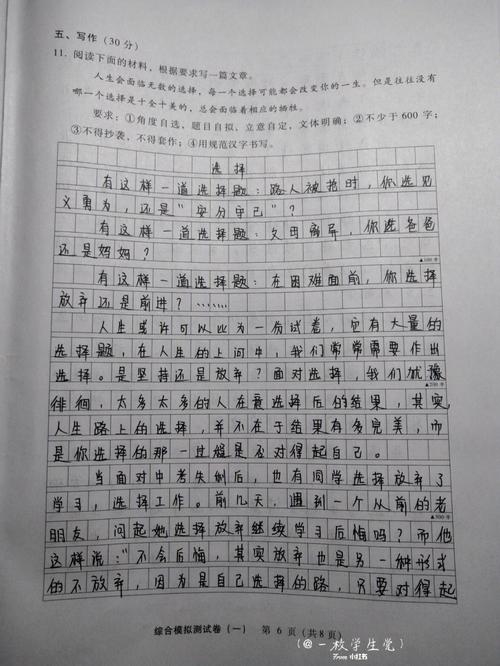 五、写作(30分)
11. 阅读下面的材料,根据要求写一篇文章。
人生会面临无数的选择,每一个选择可能都会改变你的一生。但是往往没有
哪一个选择是十全十美的,总会面临着相应的牺牲。
要求:①角度自选,题目自拟,立意自定,文体明确;②不少于600字;
③不得抄袭,不得套作;④用规范汉字书写。
选择
有这样一道选择题:路人被抢时,你选见
义勇为,还是“安分守己”?
有这样一道选择题:父母离异,你选爸爸
还是妈妈?
▲100字
有这样一道选择题:在困难面前,你选择
放弃还是前进?……
人生或许可以比为一份试卷,它有大量的
选择题,在人生的上问中,我们常常需要作出
选择。是坚持还是放弃?面对选择,我们犹豫
▲200字
徘徊,太多太多的人在意选择后的结果,其实
人生路上的选择,并不在于结果有多完美,而
是你选择的那一过程是否对得起自己。
当面对中考失利后,也有同学选择放弃了
学习,选择工作。前几天,遇到一个从前的老
▲300字
朋友,问起她选择放弃继续学习后悔吗?而他
这样说:“不会后悔,其实放弃也是另一种形式
的不放弃,因为是自己选择的路,只要对得起
综合模拟测试卷(一) 第6页(共8页)
(@一枚学生党)
From 小红书